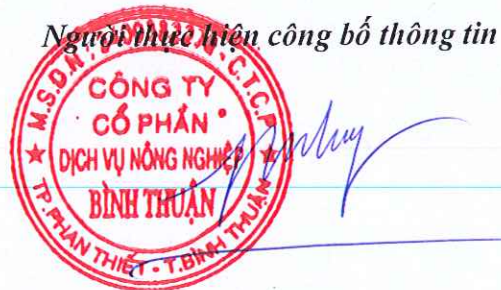 Người thực hiện công bố thông tin
M.S.D.N C.T.C.P
CÔNG TY
CỔ PHẦN
DỊCH VỤ NÔNG NGHIỆP
BÌNH THUẬN
TP. PHAN THIẾT - T. BÌNH THUẬN